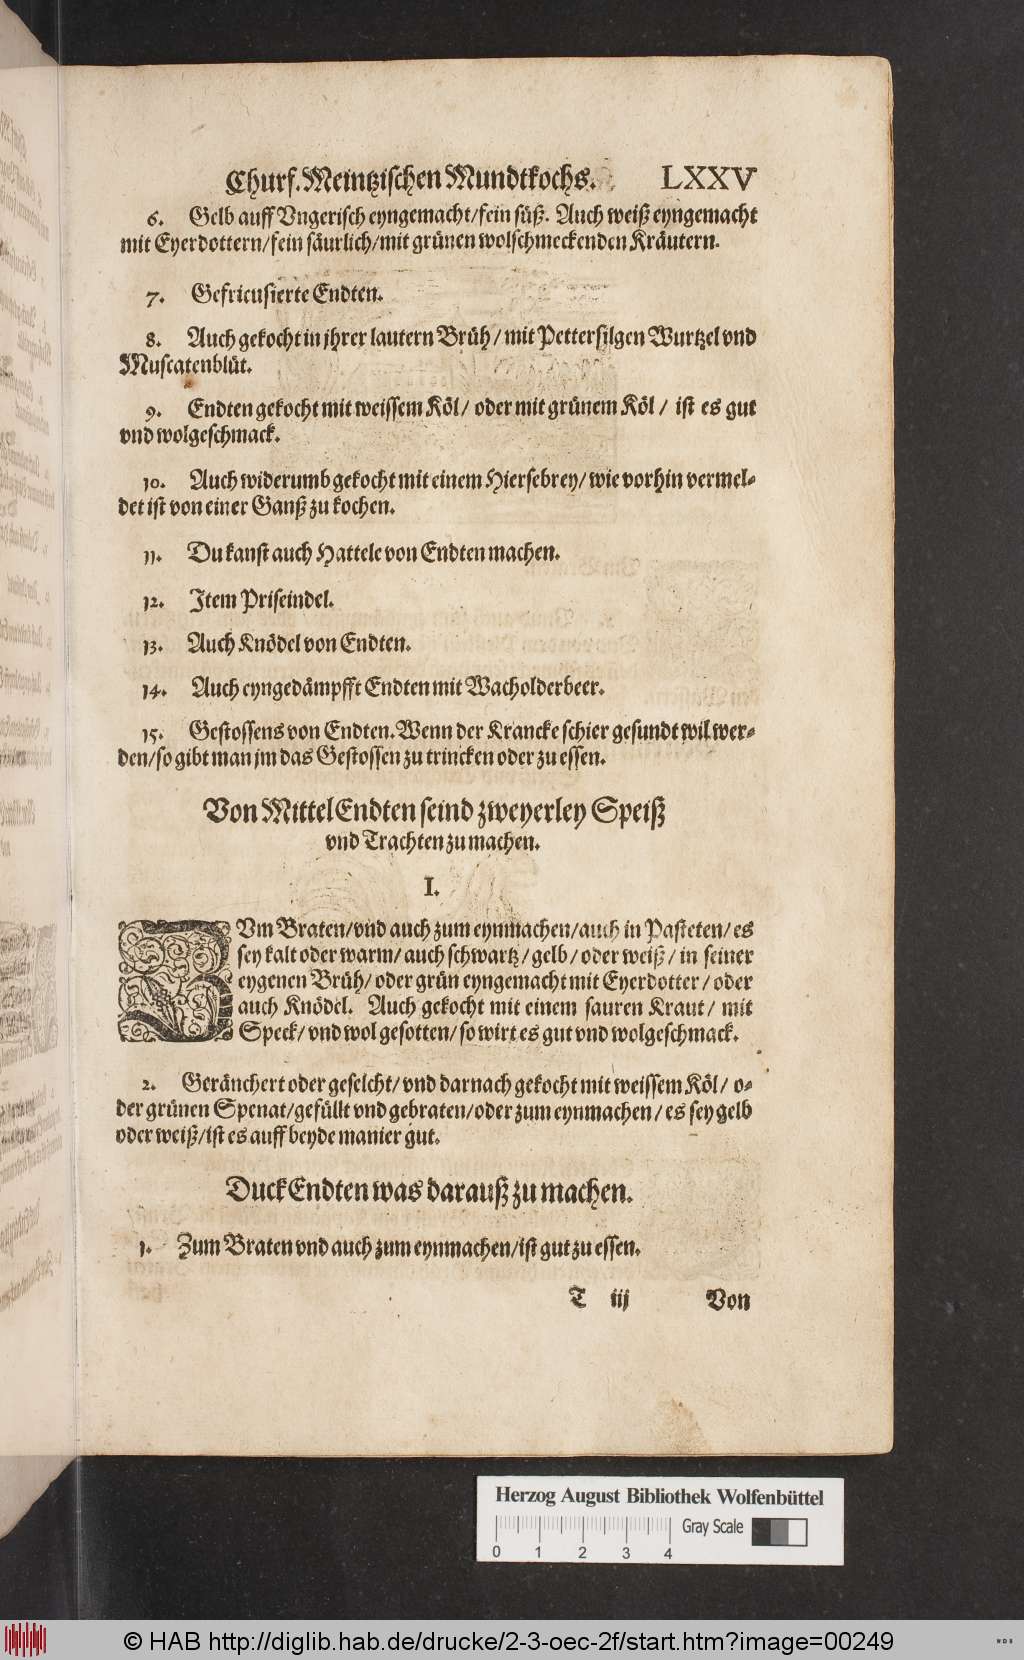 Churf. Meintzischen Mundtkochs. LXXV
6. Gelb auff Vngerisch eyngemacht/fein süß. Auch weiß eyngemacht
mit Eyerdottern/fein säurlich/mit grünen wolschmeckenden Kräutern.
7. Gefricusierte Endten.
8. Auch gekocht in jhrer lautern Brüh/ mit Pettersilgen Wurtzel vnd
Muscatenblüt.
9. Endten gekocht mit weissem Köl/ oder mit grünem Köl/ ist es gut
vnd wolgeschmack.
10. Auch widerumb gekocht mit einem Hiersebrey/ wie vorhin vermel⸗
det ist von einer Ganß zu kochen.
11. Du kanst auch Hattele von Endten machen.
12. Item Priseindel.
13. Auch Knödel von Endten.
14. Auch eyngedämpfft Endten mit Wacholderbeer.
15. Gestossens von Endten. Wenn der Krancke schier gesundt wil wer⸗
den/so gibt man jm das Gestossen zu trincken oder zu essen.
Von Mittel Endten seind zweyerley Speiß
vnd Trachten zu machen.
I.
ZVm Braten/vnd auch zum eynmachen/auch in Pasteten/ es
sey kalt oder warm/ auch schwartz/ gelb/ oder weiß/ in seiner
eygenen Brüh/ oder grün eyngemacht mit Eyerdotter/ oder
auch Knödel. Auch gekocht mit einem sauren Kraut/ mit
Speck/ vnd wol gesotten/ so wirt es gut vnd wolgeschmack.
2. Geräuchert oder geselcht/ vnd darnach gekocht mit weissem Köl/ o⸗
der grünen Spenat/gefüllt vnd gebraten/oder zum eynmachen/ es sey gelb
oder weiß/ist es auff beyde manier gut.
Duck Endten was darauß zu machen.
1. Zum Braten vnd auch zum eynmachen/ist gut zu essen.
T iij Von
Herzog August Bibliothek Wolfenbüttel
Gray Scale
0 1 2 3 4
© HAB http://diglib.hab.de/drucke/2-3-oec-2f/start.htm?image=00249